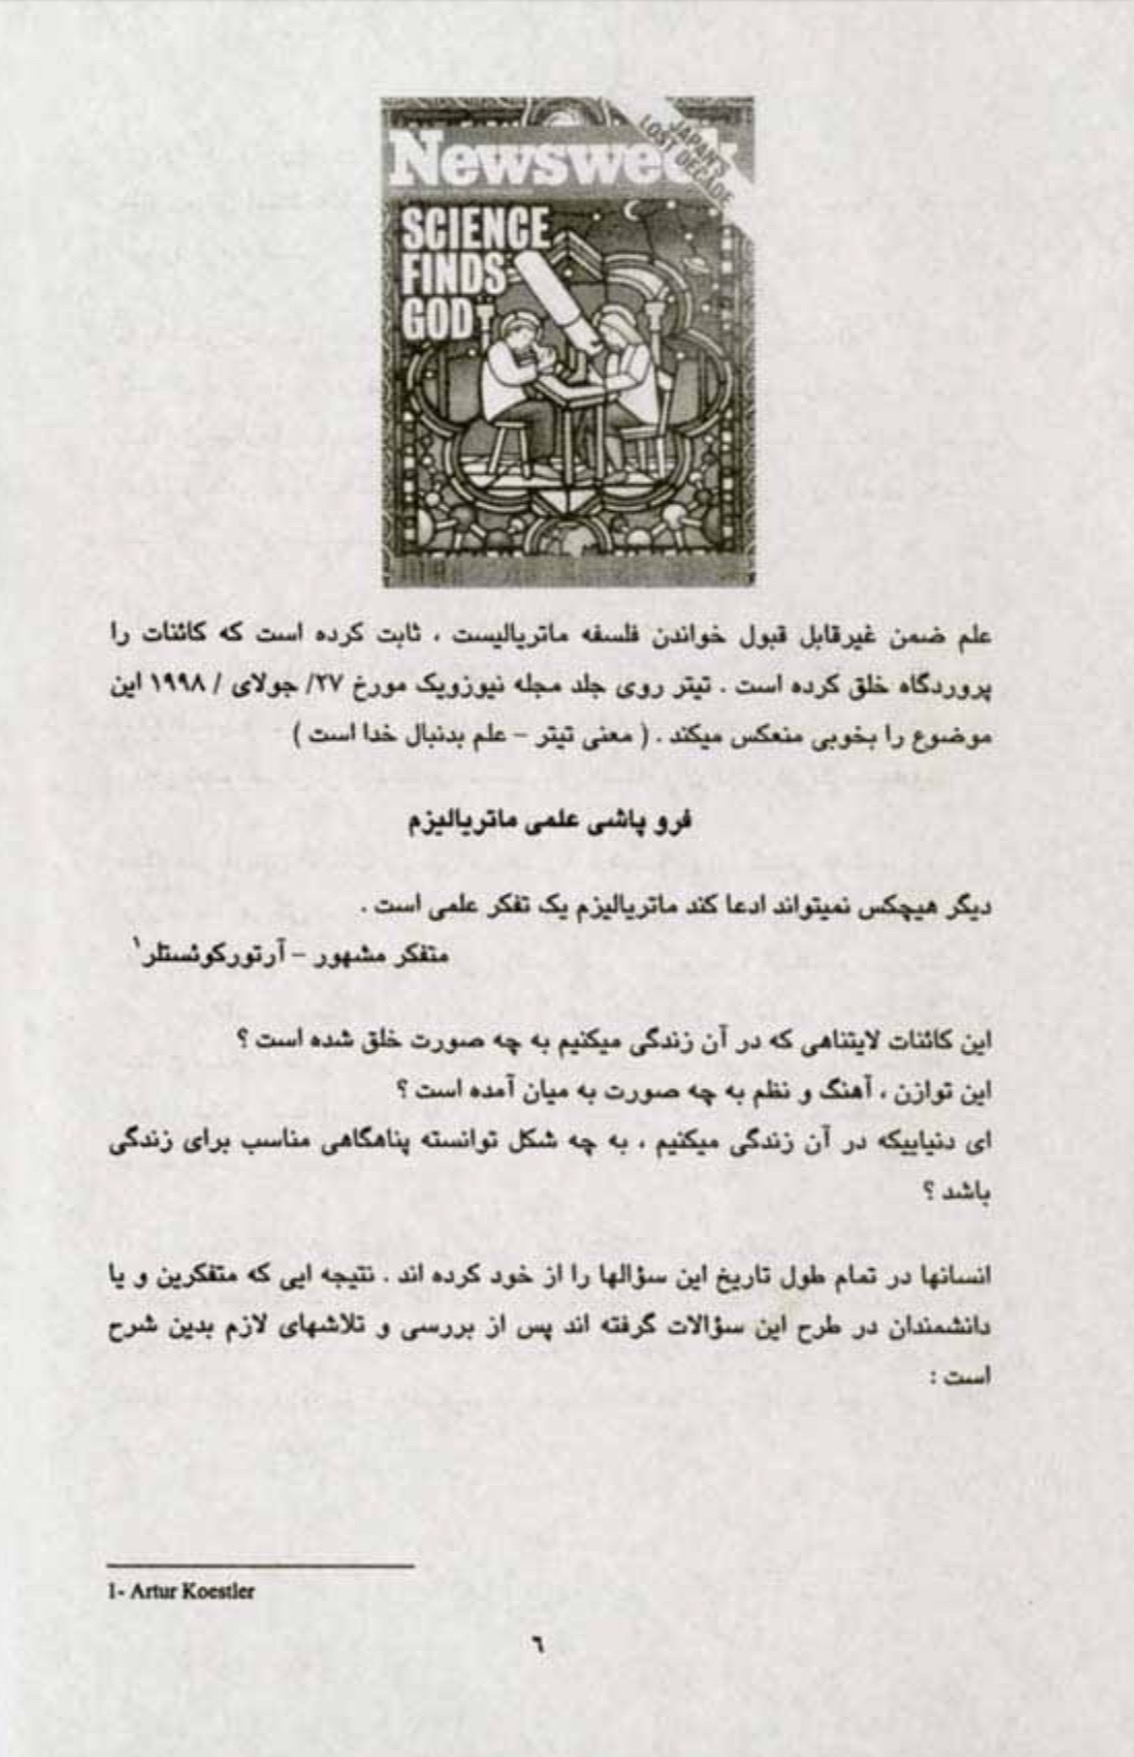 JAPAN'S
LOST DECADE
Newsweek
SCIENCE
FINDS
GOD
علم ضمن غیرقابل قبول خواندن فلسفه ماتریالیست ، ثابت کرده است که کائنات را
پروردگاه خلق کرده است . تیتر روی جلد مجله نیوزویک مورخ ۲۷/ جولای / ۱۹۹۸ این
موضوع را بخوبی منعکس میکند . ( معنی تیتر – علم بدنبال خدا است )
فرو پاشی علمی ماتریالیزم
دیگر هیچکس نمیتواند ادعا کند ماتریالیزم یک تفکر علمی است .
متفکر مشهور – آرتورکوئستلر۱
این کائنات لایتناهی که در آن زندگی میکنیم به چه صورت خلق شده است ؟
این توازن ، آهنگ و نظم به چه صورت به میان آمده است ؟
ای دنیاییکه در آن زندگی میکنیم ، به چه شکل توانسته پناهگاهی مناسب برای زندگی
باشد ؟
انسانها در تمام طول تاریخ این سؤالها را از خود کرده اند . نتیجه ایی که متفکرین و یا
دانشمندان در طرح این سؤالات گرفته اند پس از بررسی و تلاشهای لازم بدین شرح
است :
1- Artur Koestler
٦